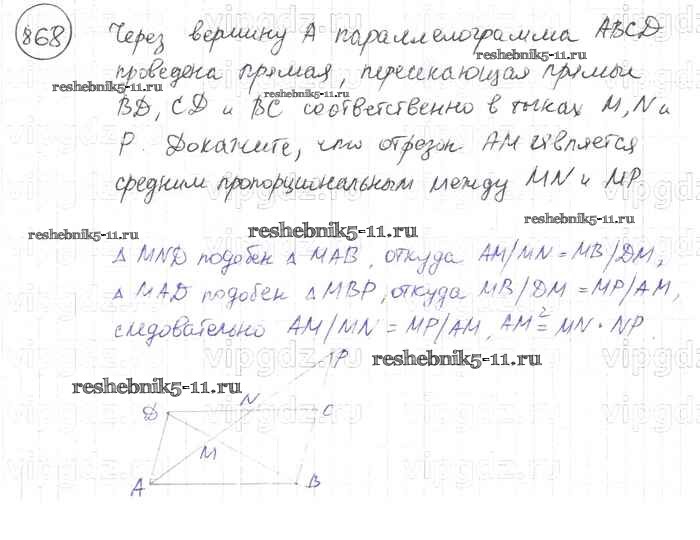 868
Через вершину А параллелограмма ABCD
reshebnik5-11.ru
проведена прямая, пересекающая прямые
reshebnik5-11.ru
BD, CD и BC соответственно в точках M, N и
P. Докажите, что отрезок AM является
средним пропорциональным между MN и MP
reshebnik5-11.ru
reshebnik5-11.ru
reshebnik5-11.ru
Δ MND подобен Δ MAB, откуда AM/MN = MB/DM,
Δ MAD подобен Δ MBP, откуда MB/DM = MP/AM,
следовательно AM/MN = MP/AM, AM² = MN · NP.
vipgdz.ru
P
reshebnik5-11.ru
reshebnik5-11.ru
D N C
M
A B